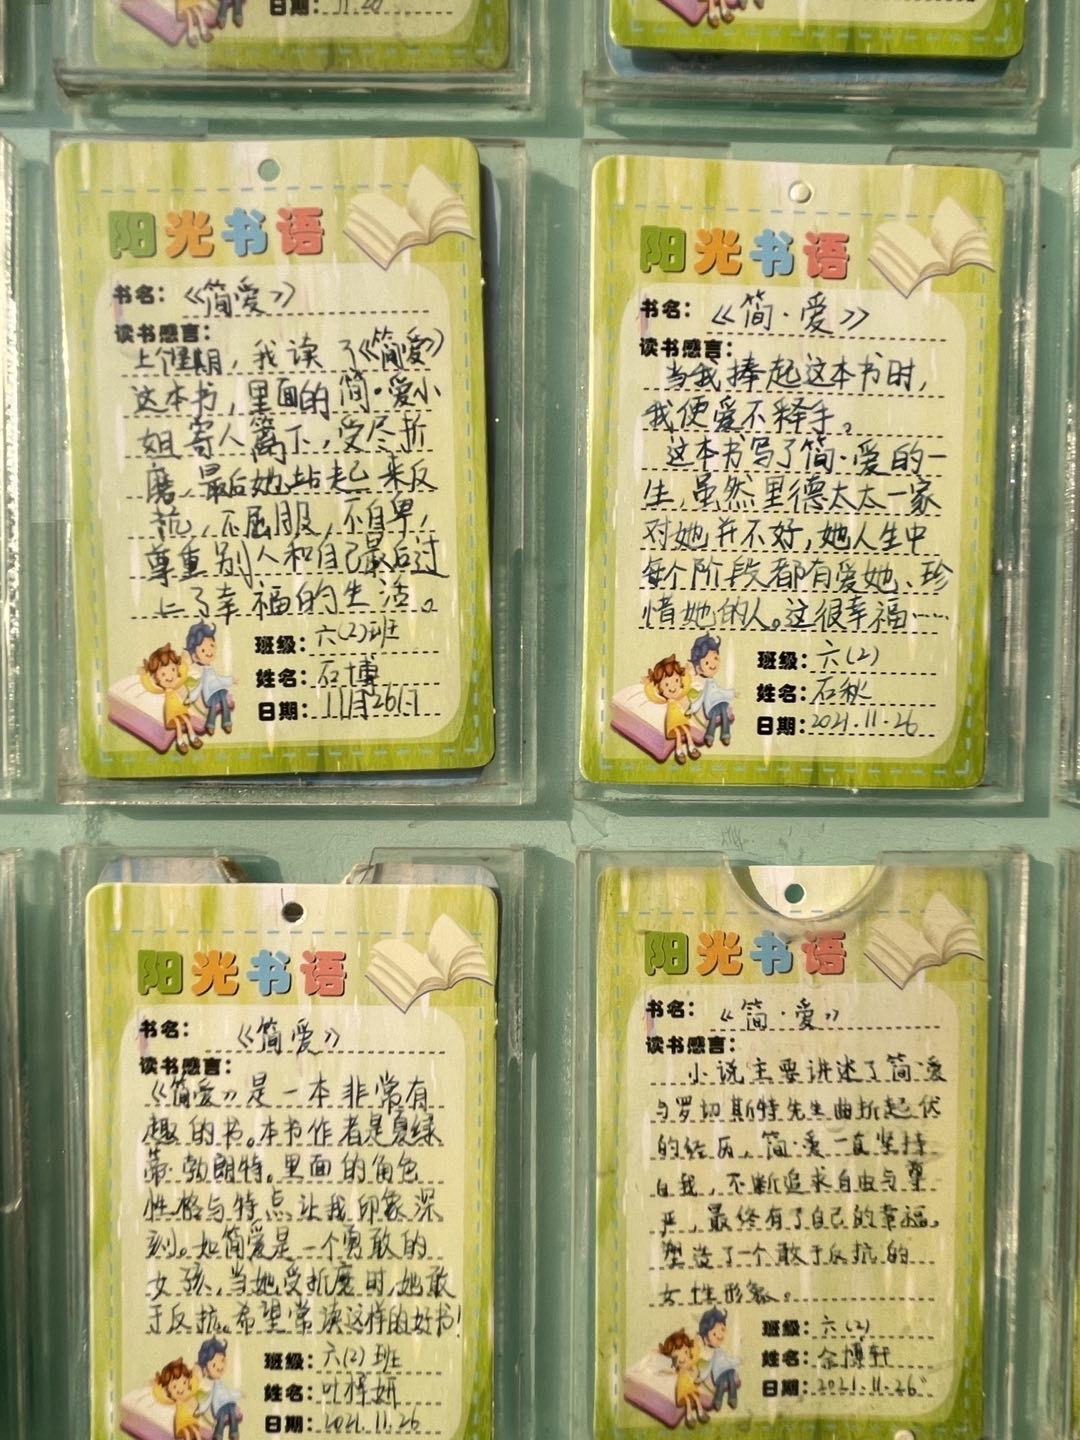 日期：11.26
阳光书语
书名：《简爱》
读书感言：
上个星期，我读了《简爱》
这本书，里面的简·爱小
姐寄人篱下，受尽折
磨，最后她站起来反
抗，不屈服，不自卑，
尊重别人和自己最后过
上了幸福的生活。
班级：六(2)班
姓名：石博
日期：11月26日
阳光书语
书名：《简·爱》
读书感言：
当我捧起这本书时，
我便爱不释手。
这本书写了简·爱的一
生，虽然里德太太一家
对她并不好，她人生中
每个阶段都有爱她、珍
惜她的人。这很幸福……
班级：六(2)
姓名：石秋
日期：2021.11.26
阳光书语
书名：《简爱》
读书感言：
《简爱》是一本非常有
趣的书。本书作者是夏绿
蒂·勃朗特。里面的角色
性格与特点让我印象深
刻。如简爱是一个勇敢的
女孩，当她受折磨时，她敢
于反抗。希望常读这样的好书！
班级：六(2)班
姓名：叶梓妍
日期：2021.11.26
阳光书语
书名：《简·爱》
读书感言：
小说主要讲述了简·爱
与罗切斯特先生曲折起伏
的经历，简·爱一直坚持
自我，不断追求自由与尊
严，最终有了自己的幸福。
塑造了一个敢于反抗的
女性形象。
班级：六(2)
姓名：余博轩
日期：2021.11.26